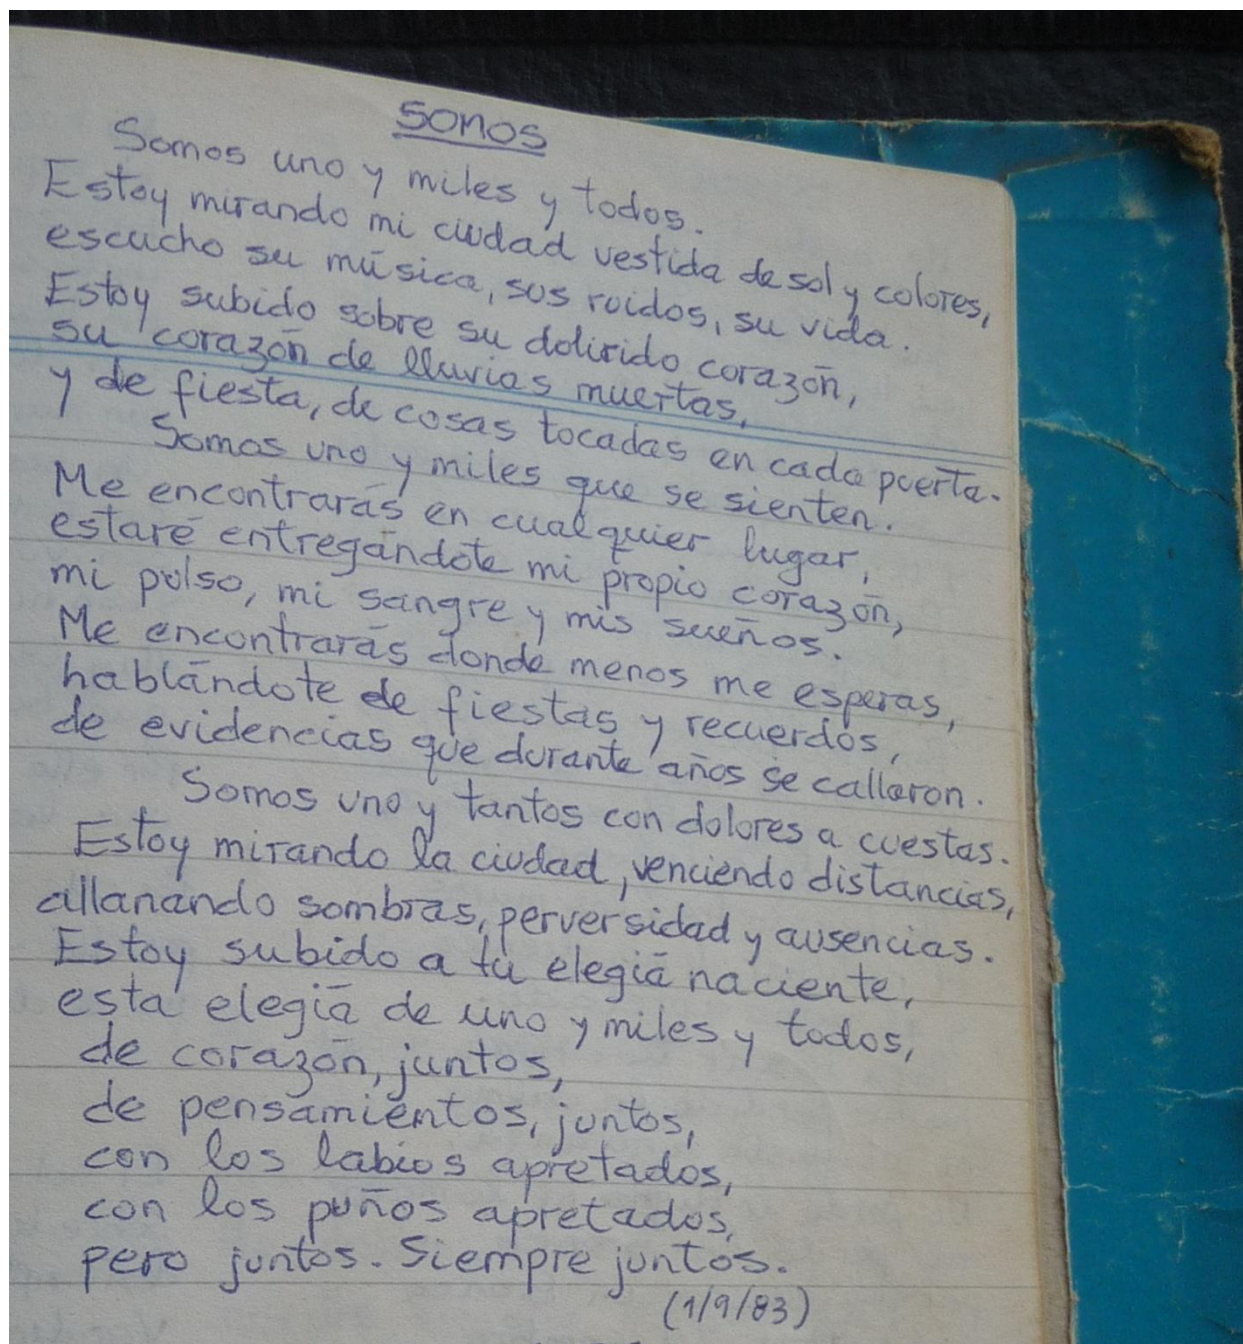 SOMOS
Somos uno y miles y todos.
Estoy mirando mi ciudad vestida de sol y colores,
escucho su música, sus ruidos, su vida.
Estoy subido sobre su dolirido corazón,
su corazón de lluvias muertas,
y de fiesta, de cosas tocadas en cada puerta.
Somos uno y miles que se sienten.
Me encontrarás en cualquier lugar,
estaré entregándote mi propio corazón,
mi pulso, mi sangre y mis sueños.
Me encontrarás donde menos me esperas,
hablándote de fiestas y recuerdos,
de evidencias que durante años se callaron.
Somos uno y tantos con dolores a cuestas.
Estoy mirando la ciudad, venciendo distancias,
allanando sombras, perversidad y ausencias.
Estoy subido a tu elegía naciente,
esta elegía de uno y miles y todos,
de corazón, juntos,
de pensamientos, juntos,
con los labios apretados,
con los puños apretados,
pero juntos. Siempre juntos.
(1/9/83)